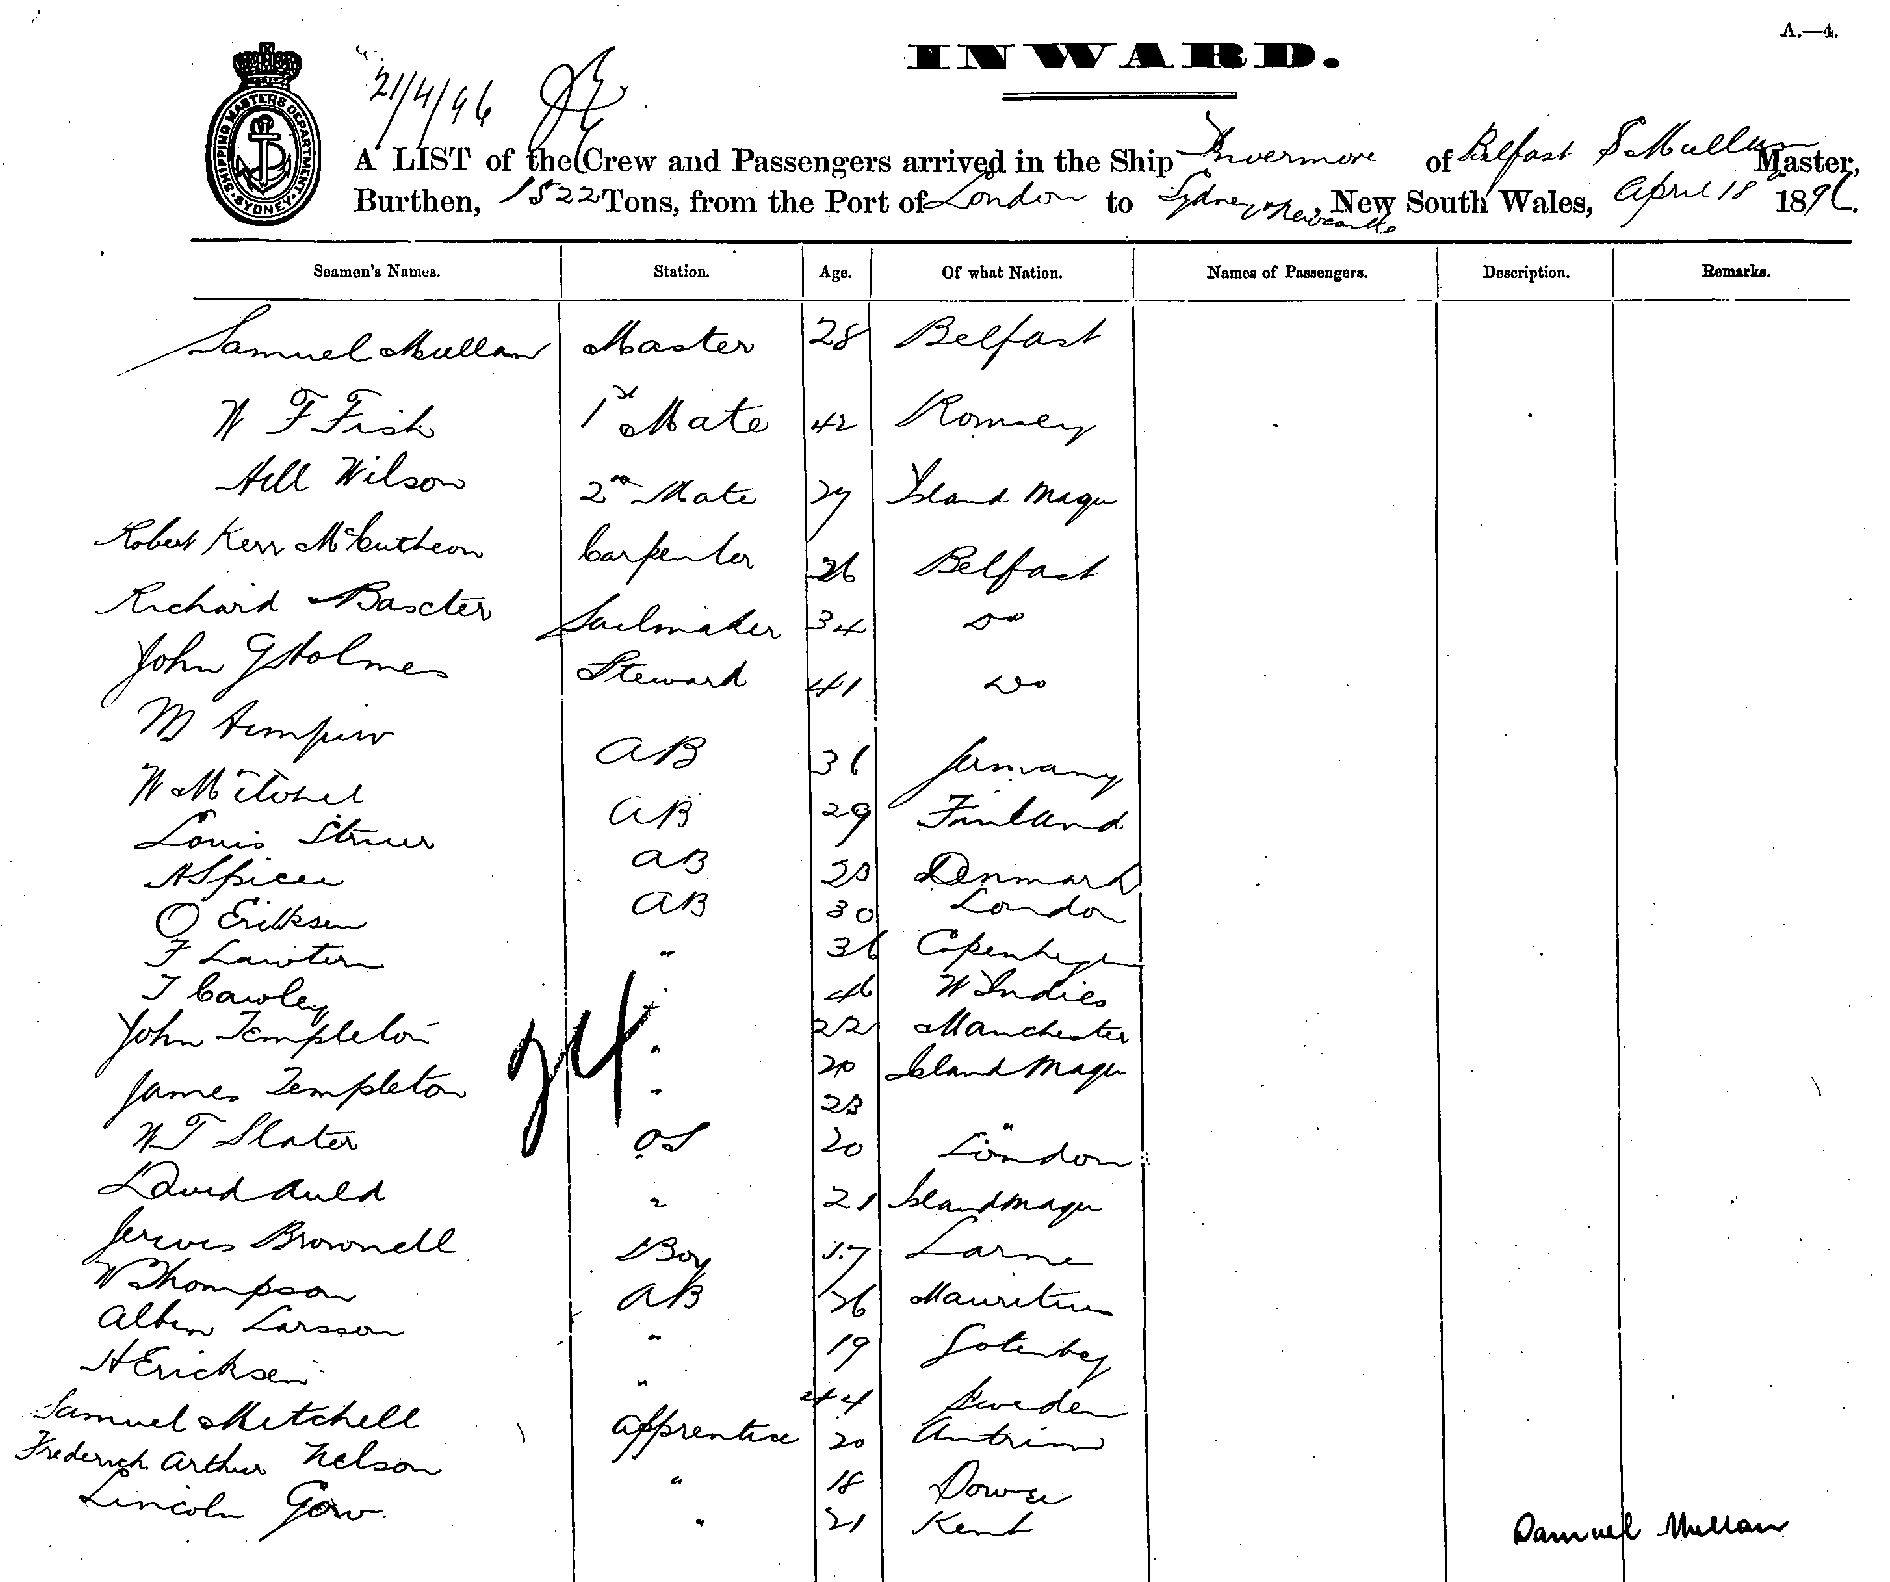 A.—4.
INWARD.
21/4/96
SHIPPING MASTERS DEPARTMENT · SYDNEY ·
A LIST of the Crew and Passengers arrived in the Ship Invermore of Belfast S Mullan Master,
Burthen, 1522 Tons, from the Port of London to Sydney Newcastle, New South Wales, April 18 1896.
Seamen's Names. Station. Age. Of what Nation. Names of Passengers. Description. Remarks.
Samuel Mullan Master 28 Belfast
W F Fish 1st Mate 42 Romsey
Hill Wilson 2nd Mate 27 Island Magee
Robert Kerr McCutcheon Carpenter 26 Belfast
Richard Baxcter Sailmaker 34 Do
John G Holmes Steward 41 Do
AB 36 Germany
W Mitchel AB 29 Finland
Louis AB Denmark
A Spicer AB 30 London
O Eriksen " 36 Copenhagen
F " 46 W Indies
T Cawley " 22 Manchester
John Templeton " 20 Island Magee
James Templeton " 23 "
W T Slater OS 20 London
David Auld " 21 Island Magee
Jervois Brownell Boy 17 Larne
W Thompson AB 26 Mauritius
Albin Larsson " 19 Gotenbeg
H Ericksen " 44 Sweden
Samuel Mitchell Apprentice 20 Antrim
Frederick Arthur Nelson " 18 Dover
Lincoln Gow " 21 Kent
24
Samuel Mullan